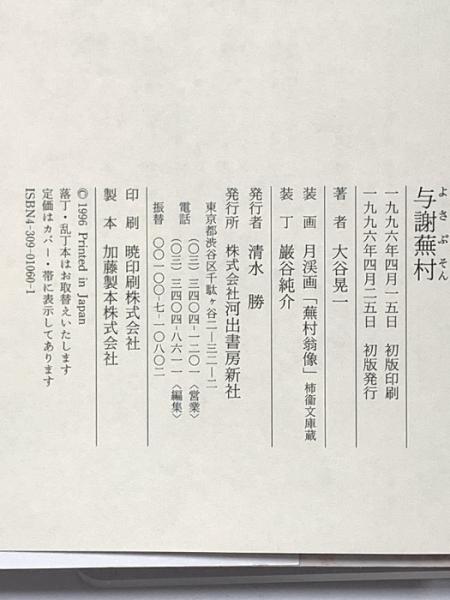 よさぶそん
与謝蕪村
一九九六年四月一五日　初版印刷
一九九六年四月二五日　初版発行
著者　大谷晃一
装画　月渓画「蕪村翁像」柿衞文庫蔵
装丁　巖谷純介
発行者　清水勝
発行所　株式会社河出書房新社
東京都渋谷区千駄ヶ谷二-三二-二
電話　(〇三)三四〇四-一二〇一〈営業〉
(〇三)三四〇四-八六一一〈編集〉
振替　〇〇一〇〇-七-一〇八〇二
印刷　暁印刷株式会社
製本　加藤製本株式会社
© 1996 Printed in Japan
落丁・乱丁本はお取替えいたします
定価はカバー・帯に表示してあります
ISBN4-309-01060-1